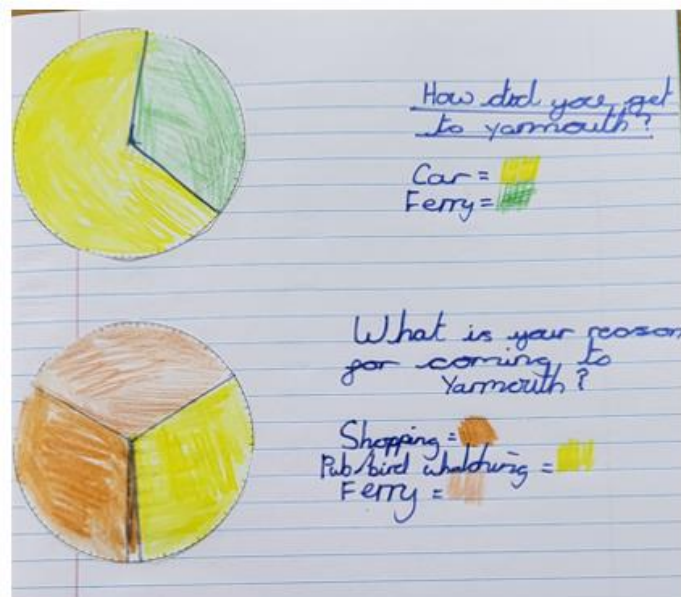 How did you get
to Yarmouth?
Car =
Ferry =
What is your reason
for coming to
Yarmouth?
Shopping =
Pub/bird whatching =
Ferry =